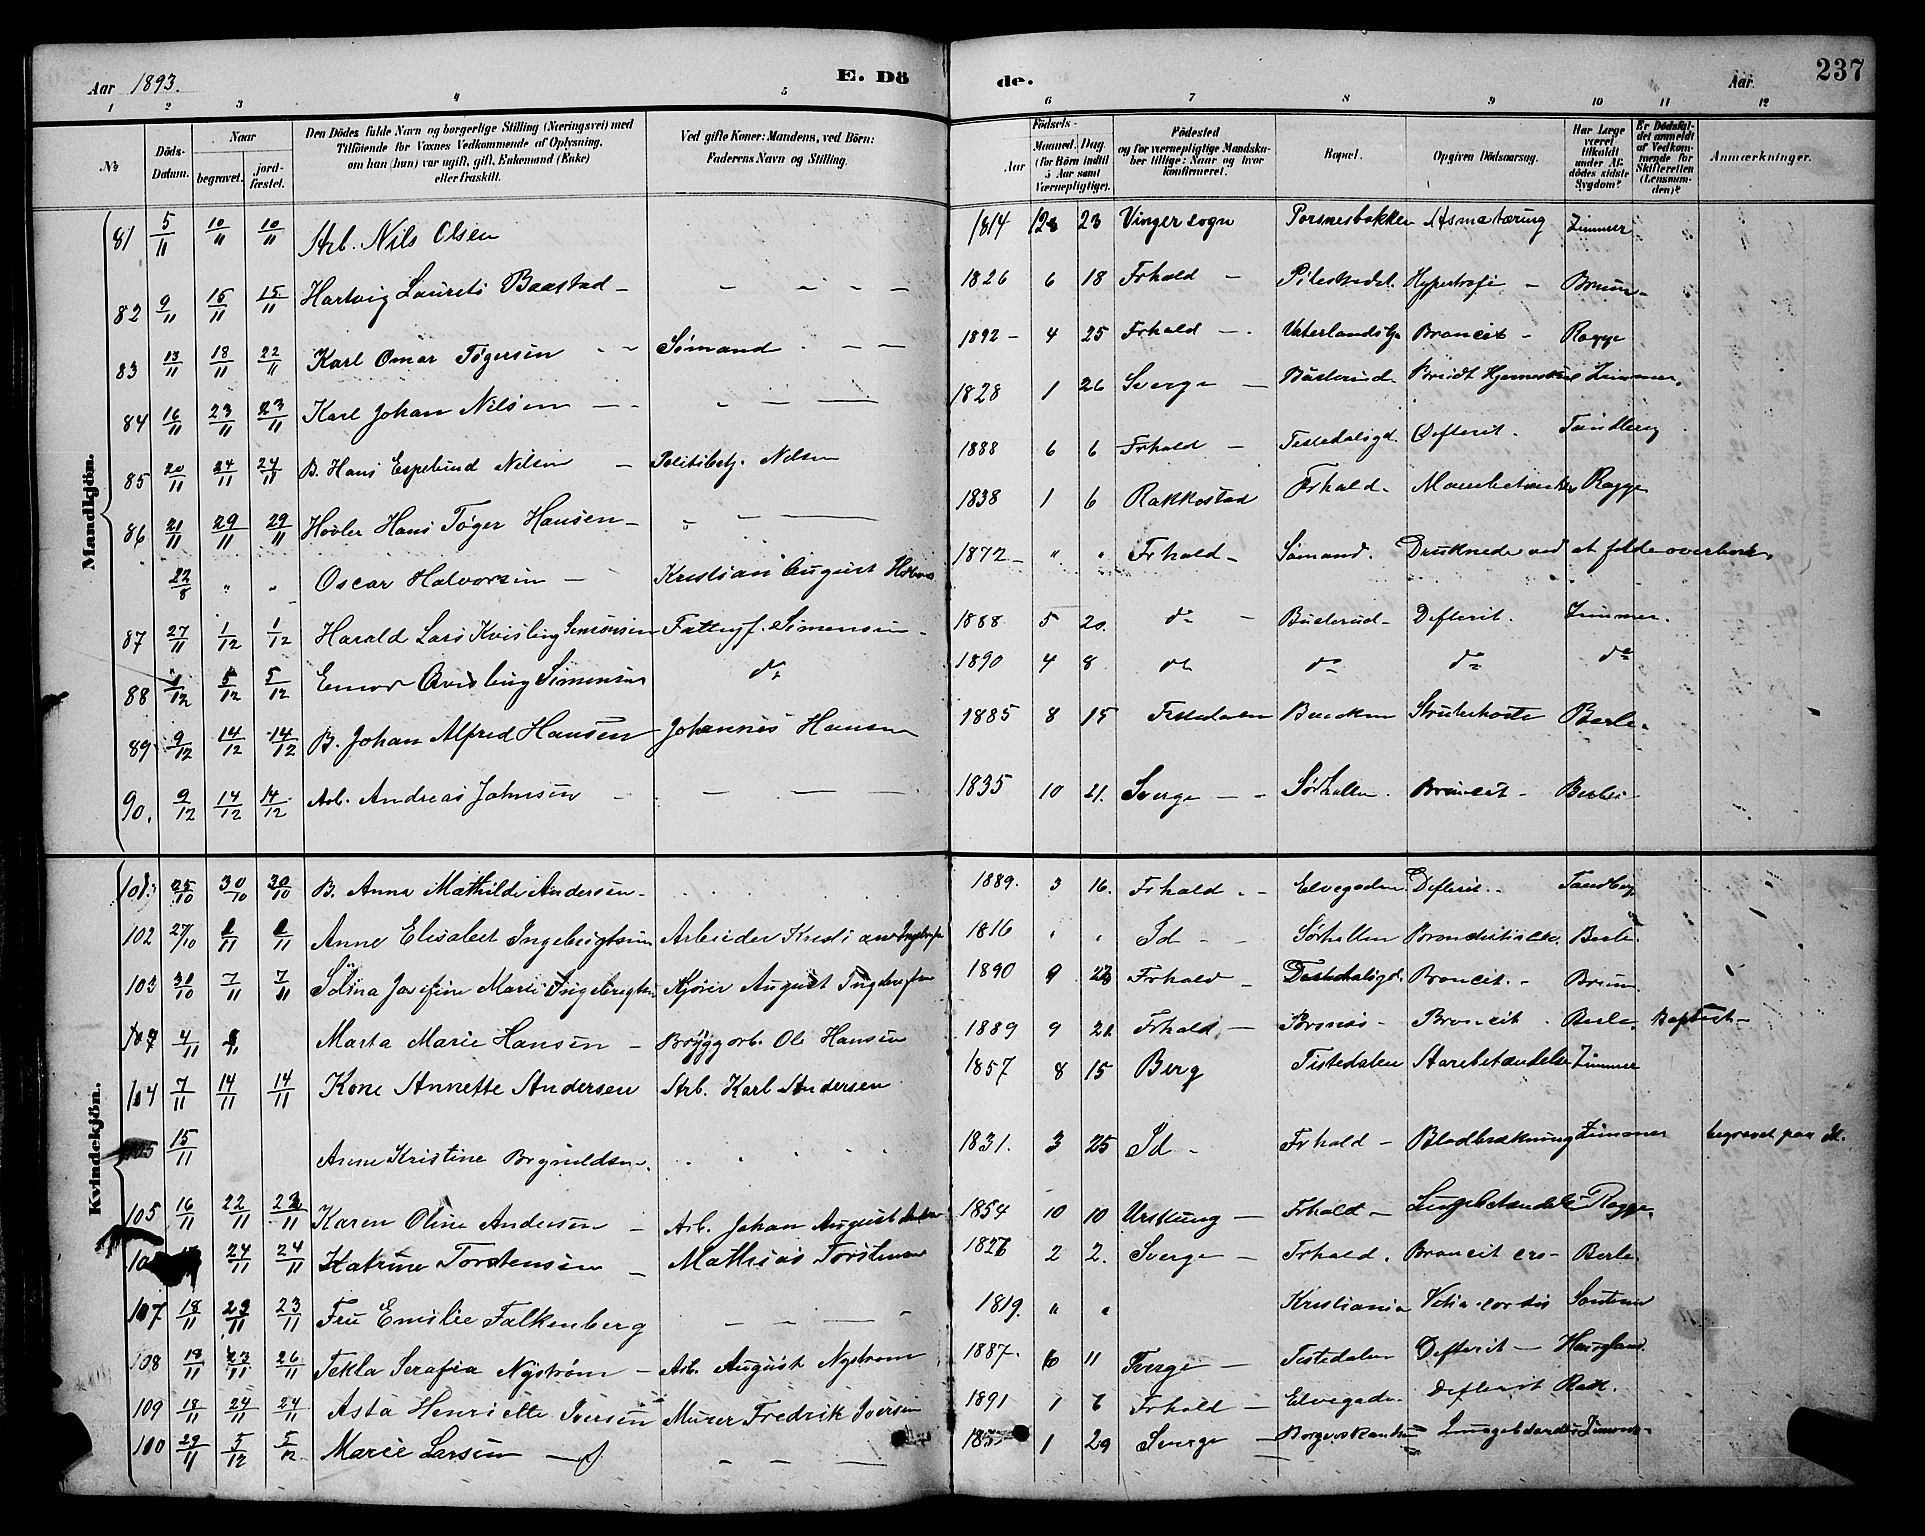 Aar 1893.
E. Dö
de.
Aar
237
1 2 3 4 5 6 7 8 9 10 11 12
№
Döds-Datum.
Naar
begravet.
jord-fæstet.
Den Dödes fulde Navn og borgerlige Stilling (Næringsvei) med
Tilföiende for Voxnes Vedkommende af Oplysning,
om han (hun) var ugift, gift, Enkemand (Enke)
eller fraskilt.
Ved gifte Koner: Mandens, ved Börn:
Faderens Navn og Stilling.
Födsels-
Aar
Maaned. Dag.
(for Börn indtil
5 Aar samt
Værnepligtige).
Födested
og for værnepligtige Mandska-
ber tillige: Naar og hvor
konfirmeret.
Bopæl.
Opgiven Dödsaarsag.
Har Læge
været
tilkaldt
under Af-
dödes sidste
Sygdom?
Er Dödsfal-
det anmeldt
af Vedkom-
mende for
Skifteretten
(Lensman-
den)?
Anmærkninger.
Mandkjön.
81 5/11 10/11 10/11 Arb. Nils Olsen 1814 12 23 Vinger sogn Porsnesbakken Asma tæring Zimmer
82 9/11 15/11 15/11 Hartvig Laurits Baastad 1826 6 18 Frhald Hypertrofi Bruun
83 13/11 18/11 22/11 Karl Omar Tøgersen Sømand 1892 4 25 Frhald Broncit Rogge
84 16/11 23/11 23/11 Karl Johan Nilsen 1828 1 26 Sverge Busterud Zimmer
85 20/11 24/11 24/11 B. Hans Espelund Nilsen Politibetj. Nilsen 1888 6 6 Frhald Tistedalsgd. Difterit. Tandberg
86 21/11 29/11 29/11 Høvler Hans Tøger Hansen 1838 1 6 Rakkestad Frhald Rogge
22/8 " " Oscar Halvorsen Kristian August 1872 " " Frhald Sømand. Druknede ved at falde overbord
87 27/11 1/12 1/12 Harald Lars Kvisling Simonsen Simensen 1888 5 20. do Busterud Difterit. Zimmer.
88 1/12 5/12 5/12 Einar Qvisling Simensen do 1890 4 8 do do do do
89 9/12 14/12 14/12 B. Johan Alfred Hansen Johannes Hansen 1885 8 15 Tistedalen Strubehoste Berle.
90. 9/12 14/12 14/12 Arb. Andreas Johnsen 1835 10 21. Sverge Sørhallen. Broncit Berle
Kvindekjön.
101 25/10 30/10 30/10 B. Anna Mathilde Andersen 1889. 3 16. Frhald Elvegaden Difterit. Tandberg
102 27/10 Anne Elisabet Ingebrigtsen Arbeider Kristian 1816 " " Id Sørhallen Berle
103 31/10 7/11 7/11 Solina Josefine Marie Ingebrigtsen Kjører August 1890 9 Frhald Tistedalsgd. Broncit. Bruun
4/11 Marta Marie Hansen Bryggarb. Ole Hansen 1889 9 21. Frhald Broncit Berle. Baptist
104 7/11 14/11 14/11 Kone Annette Andersen Arb. Karl Andersen 1857 8 15 Berg Tistedalen Zimmer
105 15/11 Anne Kristine Brynildsen. 1831. 3 25 Id Frhald Blodbrækning Zimmer begravet paa Id.
105 16/11 22/11 22/11 Karen Oline Andersen Arb. Johan August 1854 10 10 Urskung Frhald Lungebetændelse Rogge.
24/11 24/11 Katrine Torstensen Mathias Torstensen 1826 2 2. Sverge Frhald. Broncit Berle.
107 18/11 23/11 23/11 Fru Emilie Falkenberg 1819. " " Kristiania
108 18/11 23/11 26/11 Tekla Serafia Nystrøm Arb. August Nystrøm 1887. 11 Sverge Tistedalen Difterit
109 18/11 24/11 24/11 Asta Henriette Iversen Murer Fredrik Iversen 1891 1 6 Frhald Elvegaden Difterit
100 29/11 5/12 5/12 Marie Larsen 1 29 Sverge